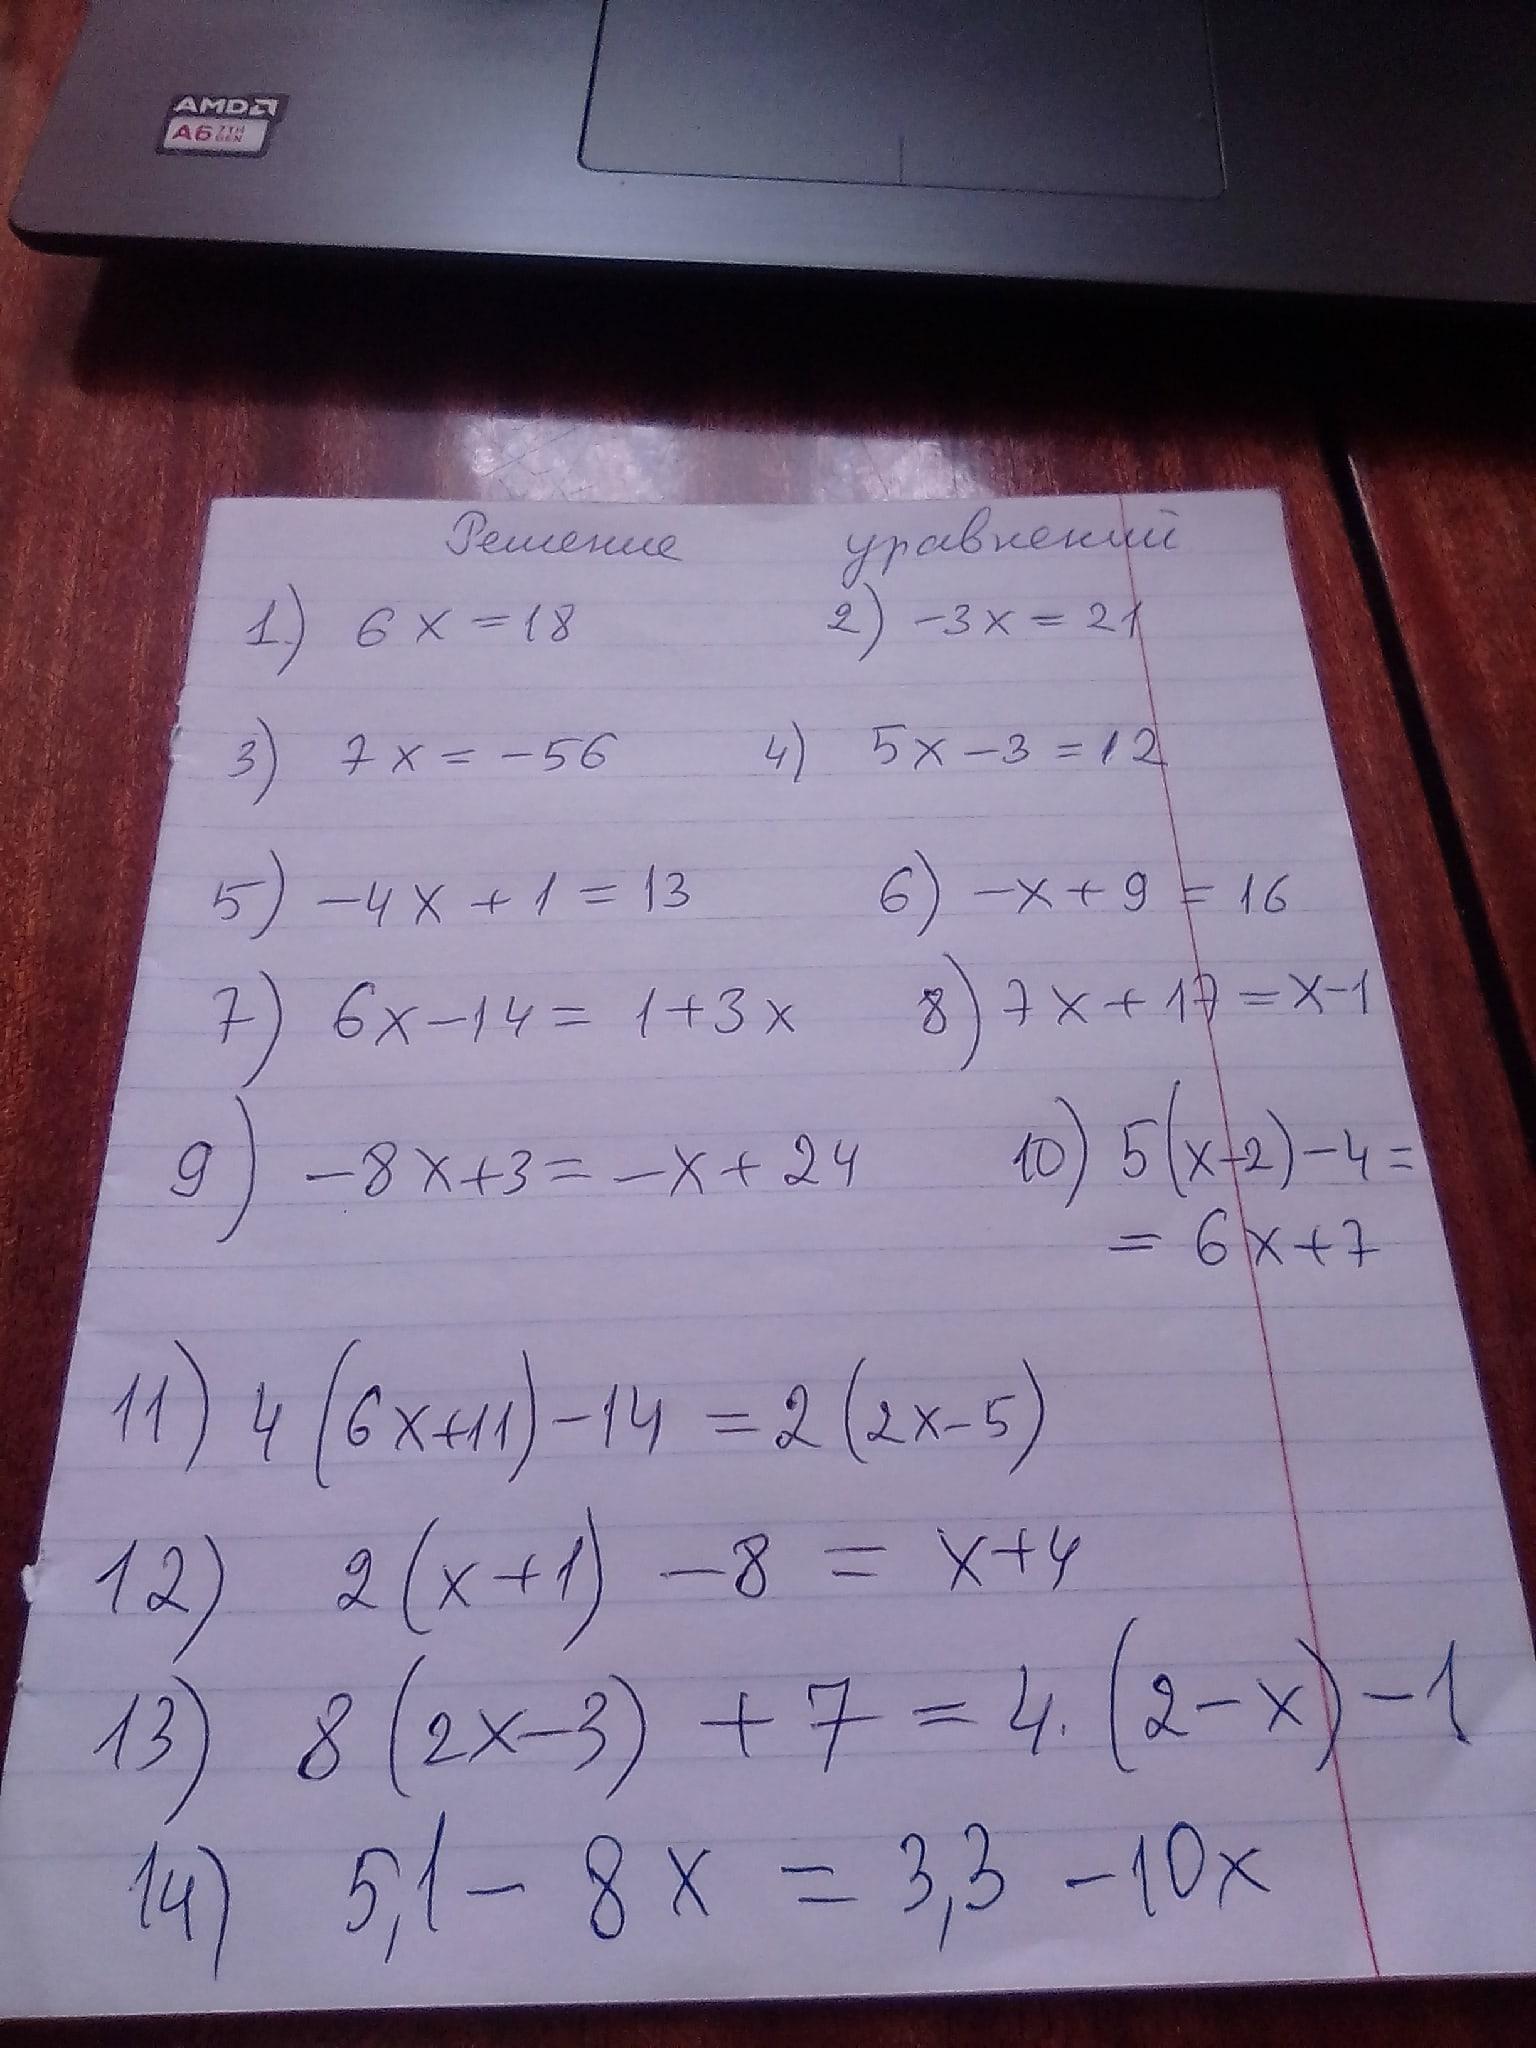 AMD
A6 7TH GEN
Решение уравнений
1) 6x=18 2) -3x=21
3) 7x=-56 4) 5x-3=12
5) -4x+1=13 6) -x+9=16
7) 6x-14=1+3x 8) 7x+17=x-1
9) -8x+3=-x+24 10) 5(x-2)-4=
=6x+7
11) 4(6x+11)-14=2(2x-5)
12) 2(x+1)-8=x+4
13) 8(2x-3)+7=4·(2-x)-1
14) 5,1-8x=3,3-10x